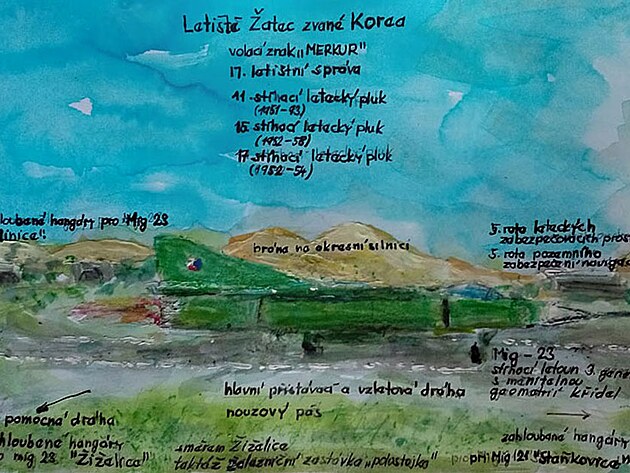 Letiště Žatec zvané Korea
volací znak "MERKUR"
17. letištní správa
11. stíhací letecký pluk
(1951-93)
15. stíhací letecký pluk
(1952-58)
17. stíhací letecký pluk
(1952-54)
hangáry pro Mig 23
brána na okresní silnici
5. rota leteckých
5. rota pozemního
zabezpečení
Mig-23
stíhací letoun 3.
s měnitelnou
geometrií křídel
hlavní přistávací a vzletová dráha
nouzový pás
pomocná dráha
hangáry
mig 23 "Žížalice"
směrem Žížalice
taktéž železniční zastávka "polostojka"
zahloubené hangáry
pro Mig 23 "Staňkovice"